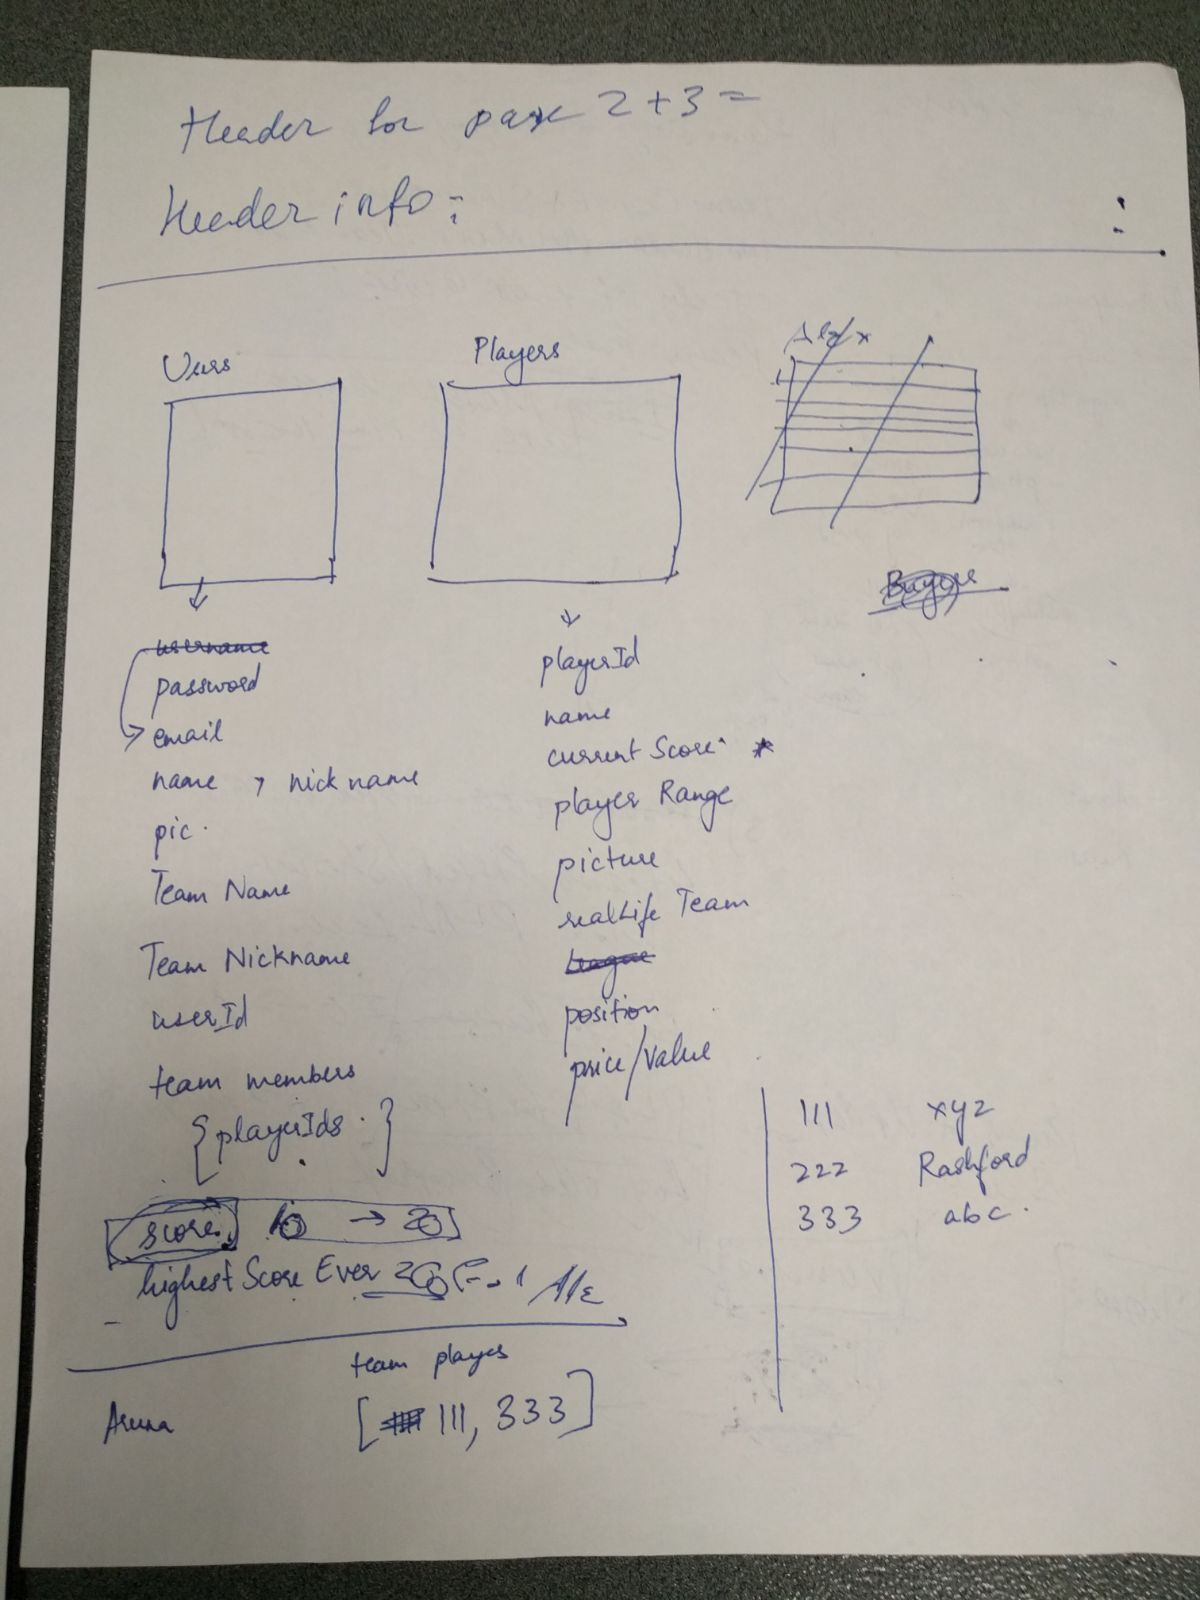 Header for page 2+3 =
Header info:
Users
Players
username
password
email
name , nick name
pic.
Team Name
Team Nickname
userId
team members
{playerIds. }
scores 10 → 20
highest Score Ever 20
playerId
name
current Score *
player Range
picture
realLife Team
League
position
price/value
111 xyz
222 Rashford
333 abc.
team player
[111, 333]